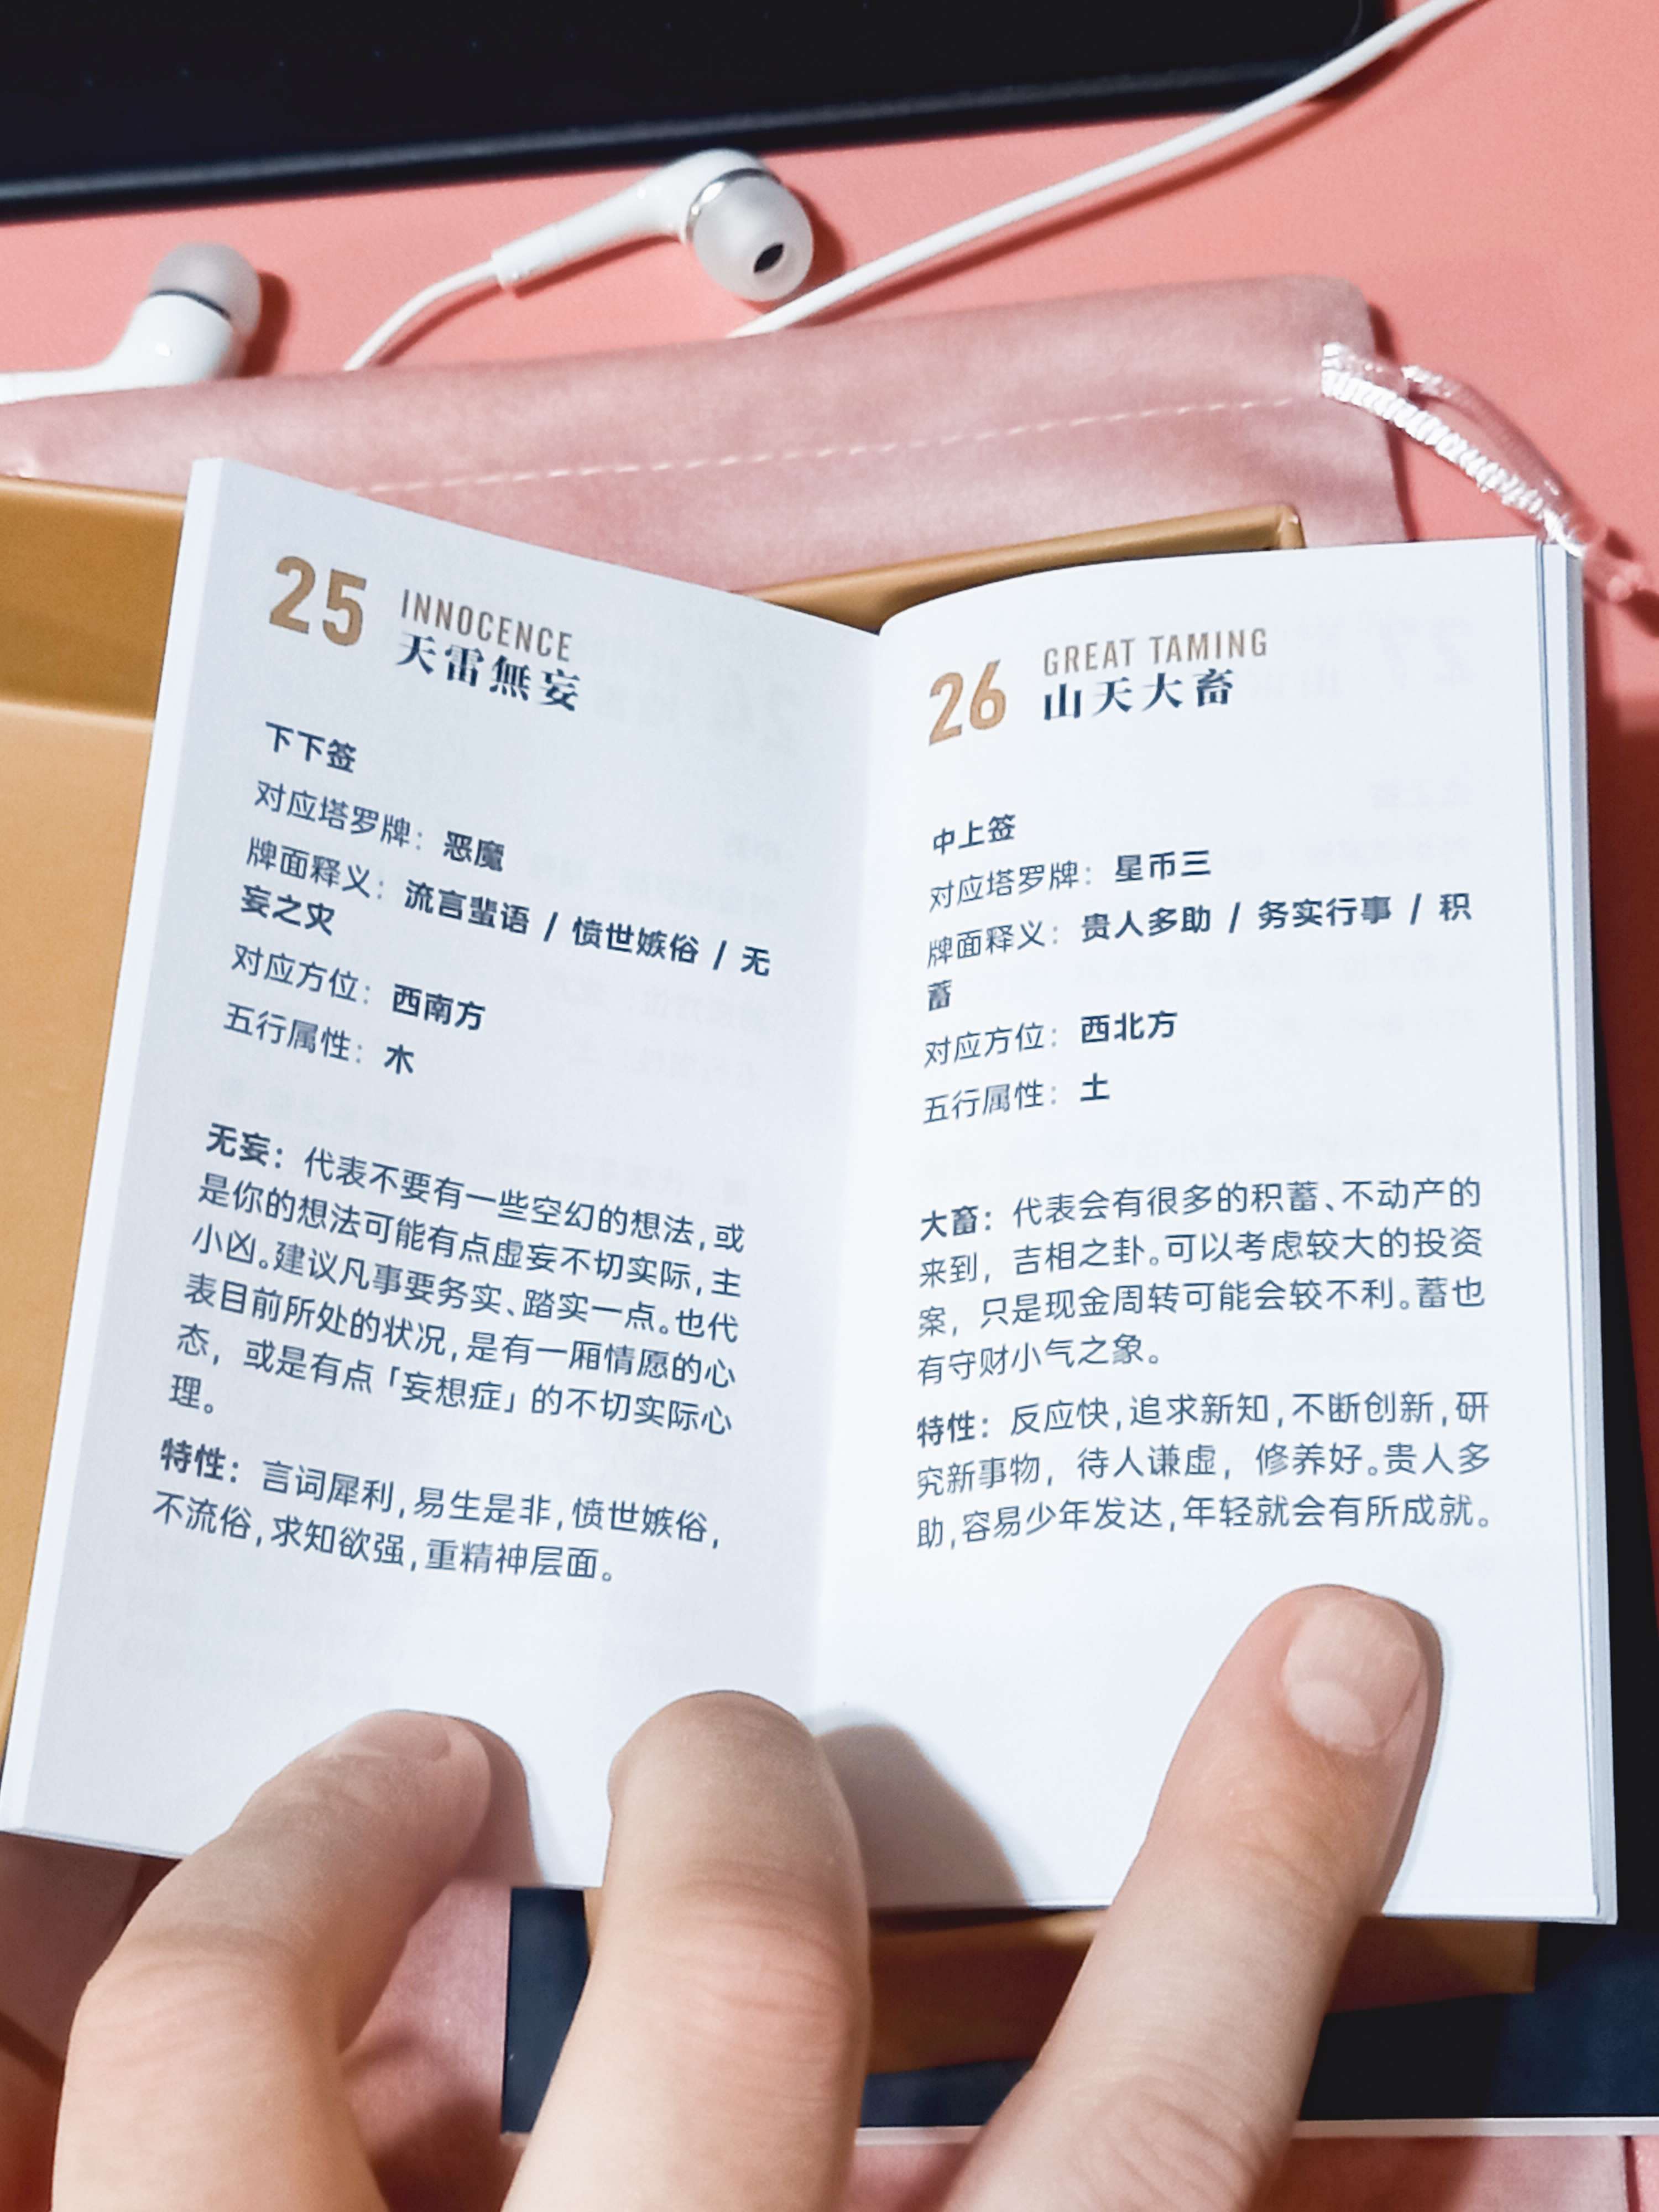 25
INNOCENCE
天雷無妄
下下签
对应塔罗牌：恶魔
牌面释义：流言蜚语 / 愤世嫉俗 / 无
妄之灾
对应方位：西南方
五行属性：木
无妄：代表不要有一些空幻的想法，或
是你的想法可能有点虚妄不切实际，主
小凶。建议凡事要务实、踏实一点。也代
表目前所处的状况，是有一厢情愿的心
态，或是有点「妄想症」的不切实际心
理。
特性：言词犀利，易生是非，愤世嫉俗，
不流俗，求知欲强，重精神层面。
26
GREAT TAMING
山天大畜
中上签
对应塔罗牌：星币三
牌面释义：贵人多助 / 务实行事 / 积
蓄
对应方位：西北方
五行属性：土
大畜：代表会有很多的积蓄、不动产的
来到，吉相之卦。可以考虑较大的投资
案，只是现金周转可能会较不利。蓄也
有守财小气之象。
特性：反应快，追求新知，不断创新，研
究新事物，待人谦虚，修养好。贵人多
助，容易少年发达，年轻就会有所成就。